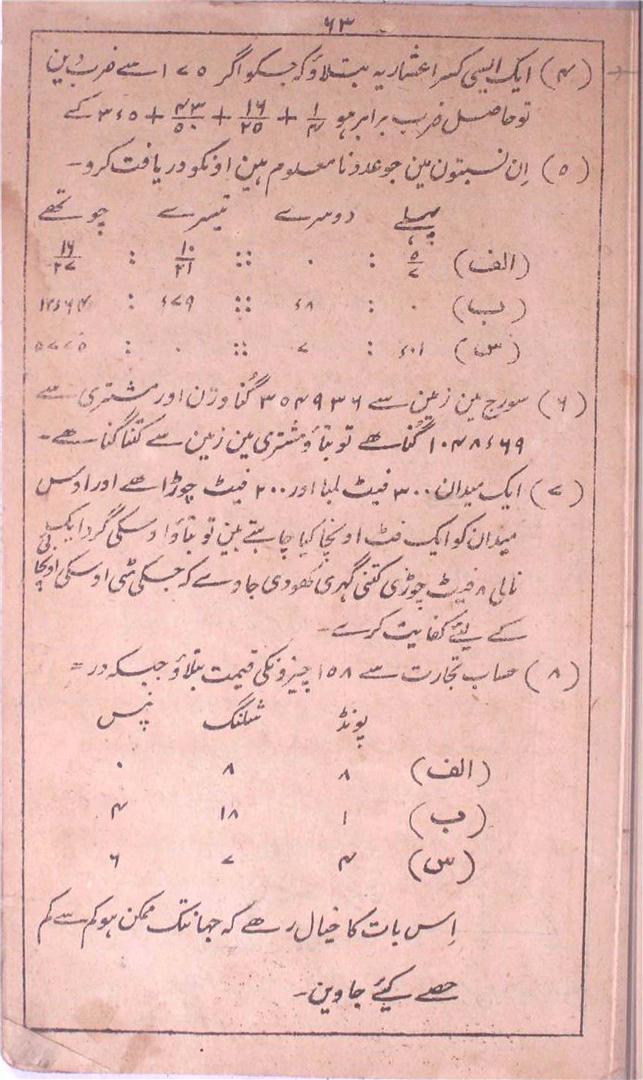 ۶۳
(۴) ایک ایسی کسر اعشاریہ بتلاؤ کہ جسکو اگر ۱۷۵ سے ضرب دین
تو حاصل ضرب برابر ہو ۱/۴ + ۱۶/۲۵ + ۴۳/۵۰ + ۳۶۵ کے
(۵) اِن نسبتون مین جو عدد نا معلوم ہین اونکو دریافت کرو۔
پہلے دوسرے تیسرے چوتھے
(الف) ۵/۷ : ۰ :: ۱۰/۲۱ : ۱۶/۲۷
(ب) ۰ : ۶۸ :: ۶۷۹ : ۱۲۶۶۴
(س) ۶۰۱ : ۷ :: ۰ : ۵۷۷۵
(۶) سورج مین زمین سے ۳۵۴۹۳۶ گُنا وزن اور مشتری سے
۱۰۴۸۶۶۹ گُنا ھے تو بتاؤ مشتری مین زمین سے کتنا گنا ھے۔
(۷) ایک میدان ۳۰۰ فیٹ لمبا اور ۲۰۰ فیٹ چوڑا ھے اور اوس
میدان کو ایک فٹ اونچا کیا چاہتے ہین تو بتاؤ اوسکی گرد ایک
نالی ۸ فیٹ چوڑی کتنی گہری کھودی جاوے کہ جسکی مٹی اوسکی اونچائی
کے لیئے کفایت کرے۔
(۸) حساب تجارت سے ۱۵۸ چیزونکی قیمت بتلاؤ جبکہ در =
پونڈ شلنگ پنس
(الف) ۸ ۸ ۰
(ب) ۱ ۱۸ ۴
(س) ۴ ۷ ۶
اِس بات کا خیال رھے کہ جہانتک ممکن ہو کم سے کم
حصے کیئے جاوین۔